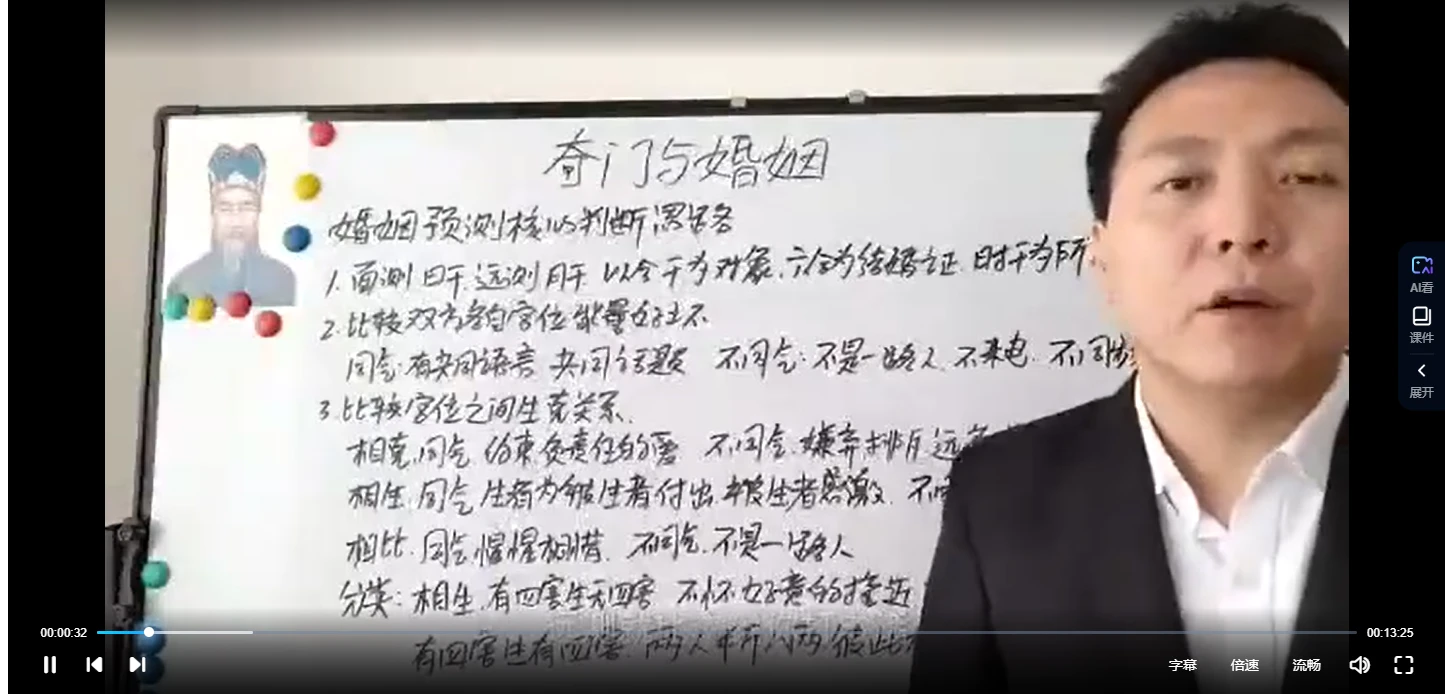 奇门与婚姻
婚姻预测核心判断思路
1. 面测日干. 远测月干. 以合干为对象. 六合为结婚证. 时干为所
2. 比较双方各自宫位能量好不
同气: 有共同语言 共同话题 不同气: 不是一路人. 不来电. 不同步
3. 比较宫位之间生克关系.
相克. 同气 约束负责任的 不同气. 嫌弃排斥 远
相生. 同气 生者为被生者付出. 被生者感激.
相比. 同气. 惺惺相惜. 不同气. 不是一路人
分类: 相生. 有四害生无四害 不怀好意的接近
有四害生有四害: 两人半斤八两 彼此
AI看
课件
展开
00:00:32
00:13:25
字幕
倍速
流畅